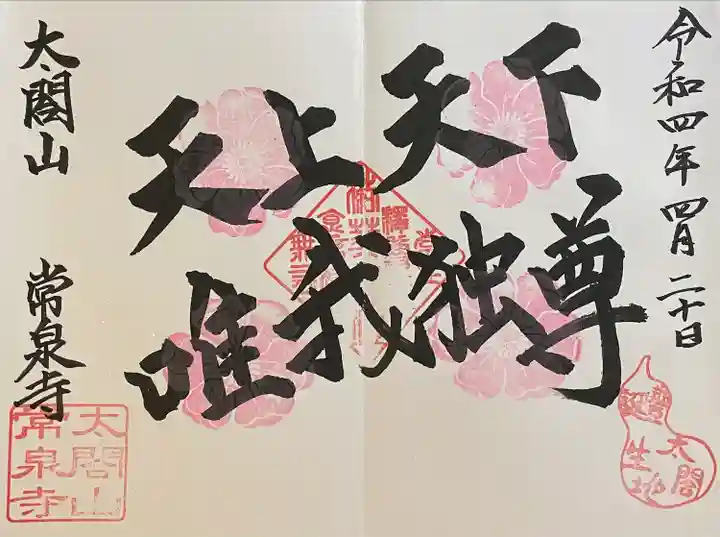 令和四年四月二十日
天上天下
唯我独尊
太閤山 常泉寺
太閤山
常泉寺
太閤
生地